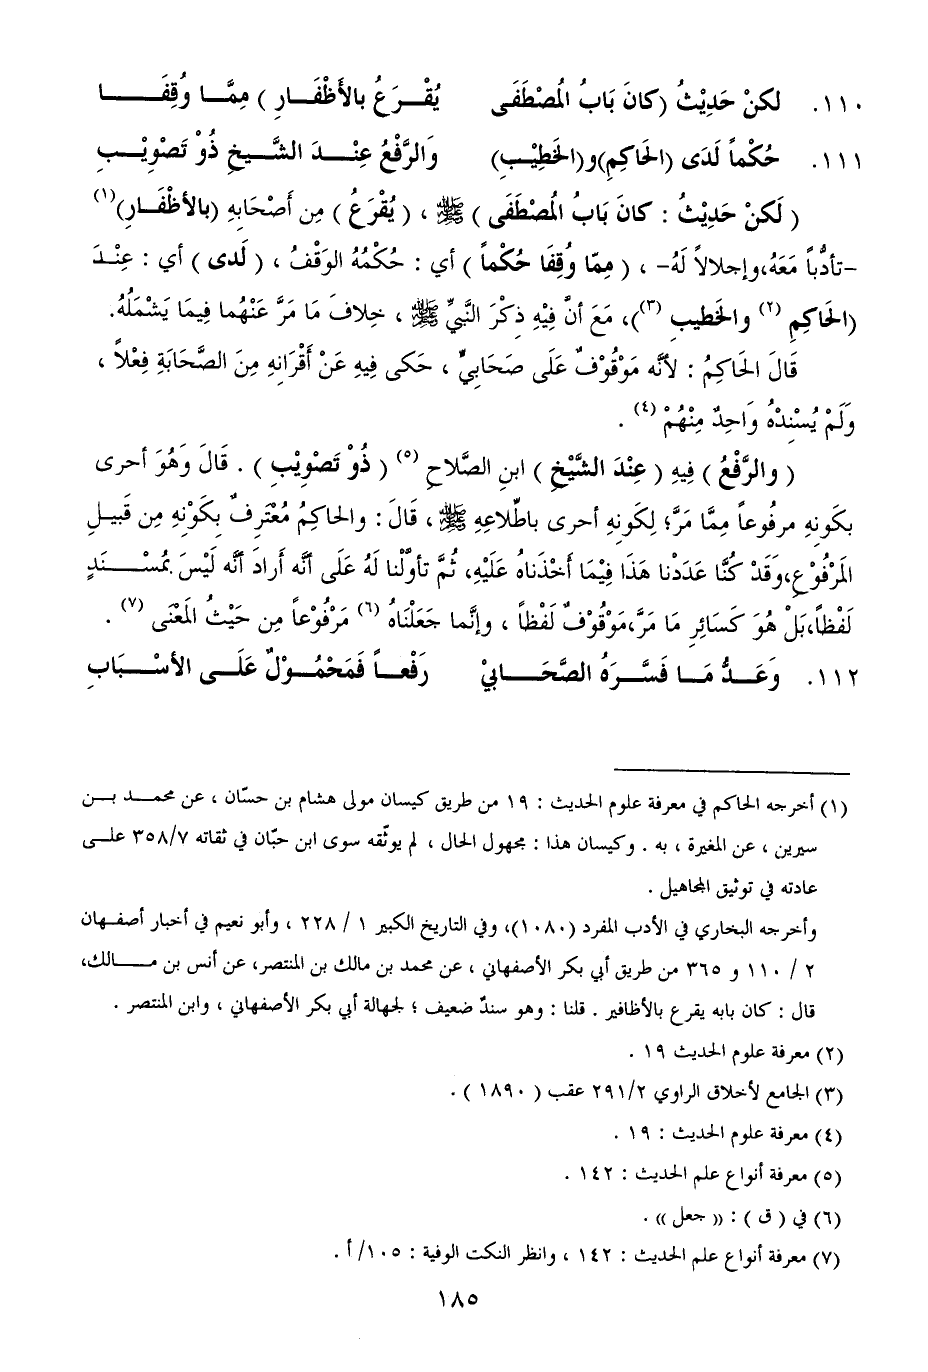 ١١٠. لكنْ حَدِيْثُ (كانَ بَابُ المُصْطَفَى يُقْرَعُ بالأَظْفَارِ) مِمَّا وُقِفَا
١١١. حُكْماً لَدَى (الحَاكِمِ)و(الخَطِيْبِ) وَالرَّفْعُ عِنْدَ الشَّيخِ ذُو تَصْوِيْبِ
( لَكنْ حَدِيْثُ : كانَ بَابُ المُصْطَفَى ) ﷺ ، ( يُقْرَعُ ) مِن أَصْحَابِهِ (بالأظْفَارِ)(١)
-تأدُّباً مَعَهُ،وإجلالاً لَهُ- ، ( مِمّا وُقِفَا حُكْماً ) أي : حُكْمُهُ الوَقْفُ ، ( لَدى ) أي : عِنْدَ
(الحَاكِمِ (٢) والخَطيبِ (٣))، مَعَ أنَّ فِيْهِ ذِكْرَ النَّبيِّ ﷺ ، خِلافَ مَا مَرَّ عَنْهُما فِيمَا يَشْمَلُهُ.
قَالَ الحَاكِمُ : لأنَّه مَوْقُوفٌ عَلَى صَحَابيٍّ ، حَكى فِيهِ عَنْ أَقْرَانِهِ مِنَ الصَّحَابَةِ فِعْلاً ،
وَلَمْ يُسْنِدْهُ وَاحِدٌ مِنْهُمْ (٤) .
( والرَّفْعُ ) فِيهِ ( عِنْدَ الشَّيْخِ ) ابنِ الصَّلاحِ (٥) ( ذُو تَصْوِيْبِ ) . قَالَ وَهُوَ أحرى
بكَونِهِ مرفُوعاً مِمَّا مَرَّ؛ لِكَونِهِ أحرى باطِّلاعِهِ ﷺ ، قَالَ : والحاكِمُ مُعْتَرِفٌ بِكَوْنِهِ مِن قَبيلِ
المَرْفُوعِ،وَقَدْ كُنَّا عَدَدْنا هَذا فِيمَا أَخَذْناهُ عَلَيْهِ، ثُمَّ تأوَّلْنا لَهُ عَلَى أنَّه أرادَ أنَّه لَيْسَ بمُسْنَدٍ
لَفْظاً،بَلْ هُوَ كَسَائِرِ مَا مَرَّ،مَوْقُوفٌ لَفْظاً ، وإنَّما جَعَلْنَاهُ (٦) مَرْفُوعاً مِن حَيْثُ المَعْنَى (٧) .
١١٢. وَعَدُّ مَا فَسَّرَهُ الصَّحَابيْ رَفْعاً فَمَحْمُوْلٌ عَلَى الأسْبَابِ
(١) أخرجه الحاكم في معرفة علوم الحديث : ١٩ من طريق كيسان مولى هشام بن حسّان ، عن محمد بن
سيرين ، عن المغيرة ، به . وكيسان هذا : مجهول الحال ، لم يوثّقه سوى ابن حبّان في ثقاته ٣٥٨/٧ على
عادته في توثيق المجاهيل .
وأخرجه البخاري في الأدب المفرد (١٠٨٠)، وفي التاريخ الكبير ١ / ٢٢٨ ، وأبو نعيم في أخبار أصفهان
٢ / ١١٠ و ٣٦٥ من طريق أبي بكر الأصفهاني ، عن محمد بن مالك بن المنتصر، عن أنس بن مالك،
قال : كان بابه يقرع بالأظافير . قلنا : وهو سندٌ ضعيف ؛ لجهالة أبي بكر الأصفهاني ، وابن المنتصر .
(٢) معرفة علوم الحديث ١٩ .
(٣) الجامع لأخلاق الراوي ٢٩١/٢ عقب ( ١٨٩٠ ) .
(٤) معرفة علوم الحديث : ١٩ .
(٥) معرفة أنواع علم الحديث : ١٤٢ .
(٦) في ( ق ) : (( جعل )) .
(٧) معرفة أنواع علم الحديث : ١٤٢ ، وانظر النكت الوفية : ١٠٥/ أ .
١٨٥